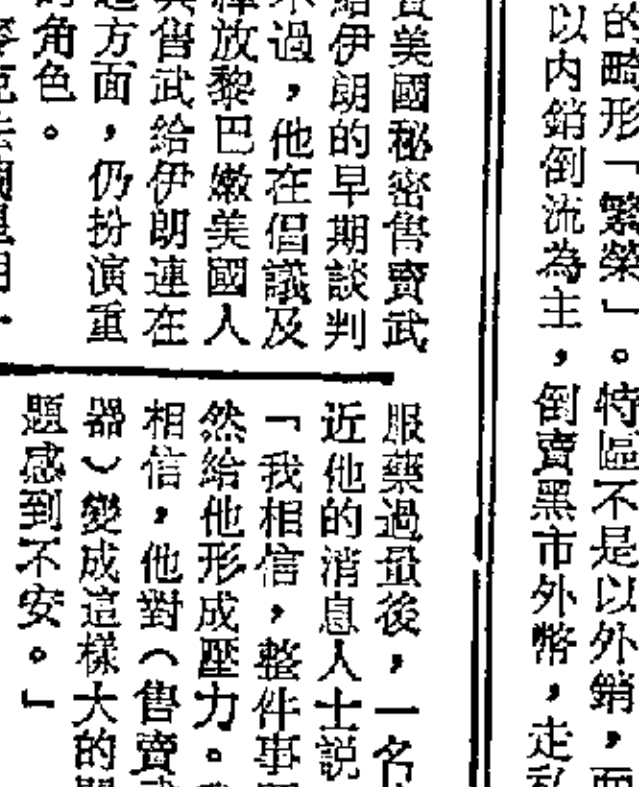 的畸形「繁榮」。特區不是以外銷,而
以内銷倒流為主,倒賣黑市外幣,走私
賣美國秘密售賣武
給伊朗的早期談判
不過,他在倡議及
釋放黎巴嫩美國人
售武給伊朗連在
這方面,仍扮演重
的角色。
服藥過量後,一名
近他的消息人士説
「我相信,整件事
然給他形成壓力。
相信,他對(售賣武
器)變成這樣大的問
題感到不安。」